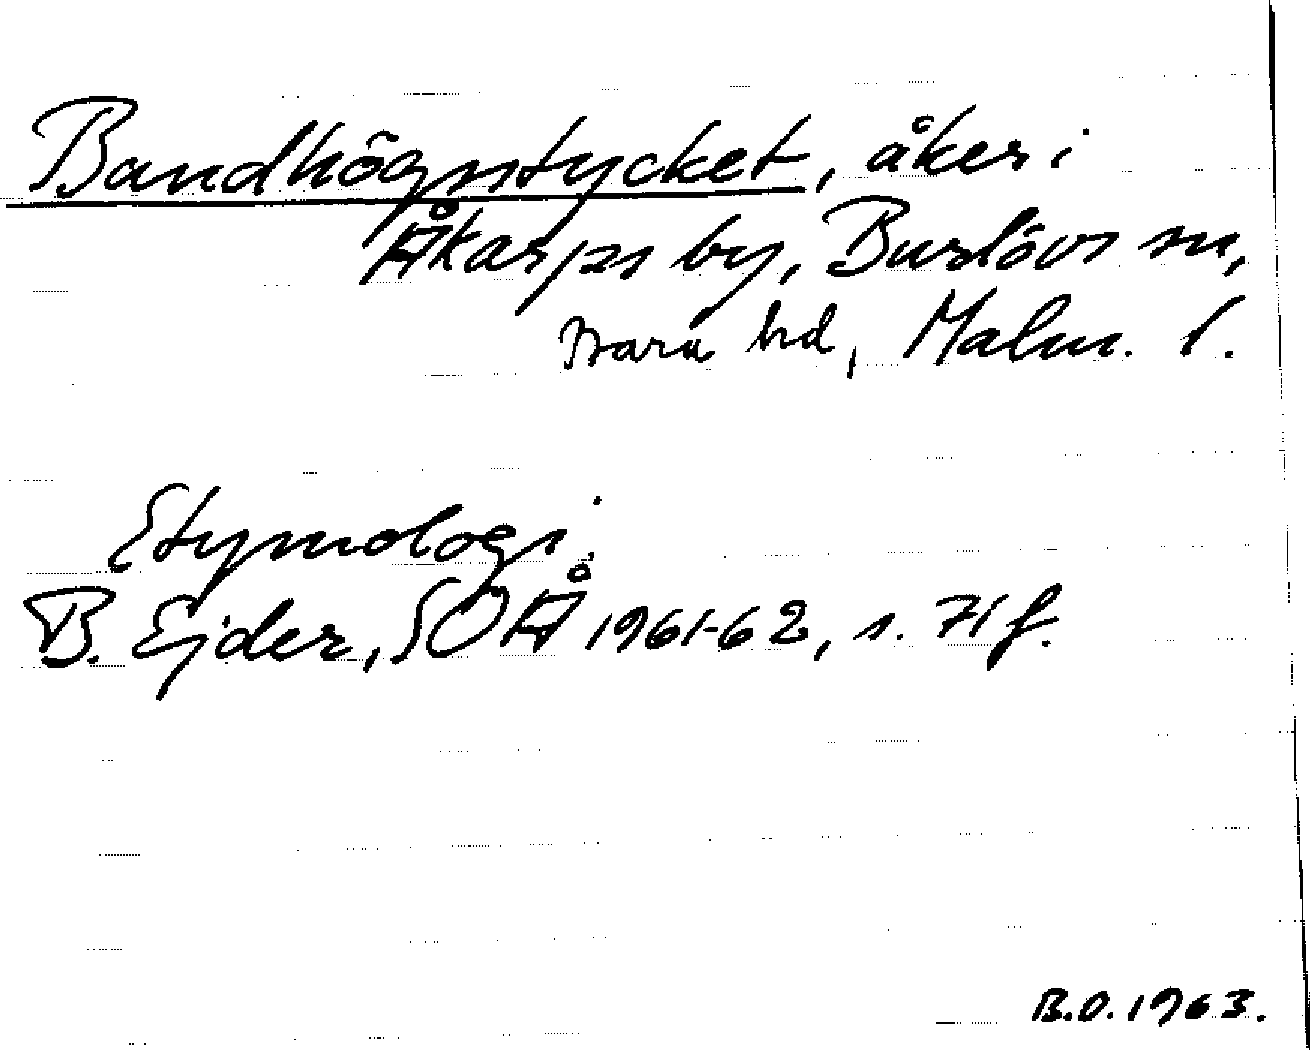 Bandhögstycket, åker i
Åkarps by, Burlövs sn,
Bara hd, Malm. l.
Etymologi
B. Ejder, SOÅ 1961-62, s. 71 f.
B.O. 1963.